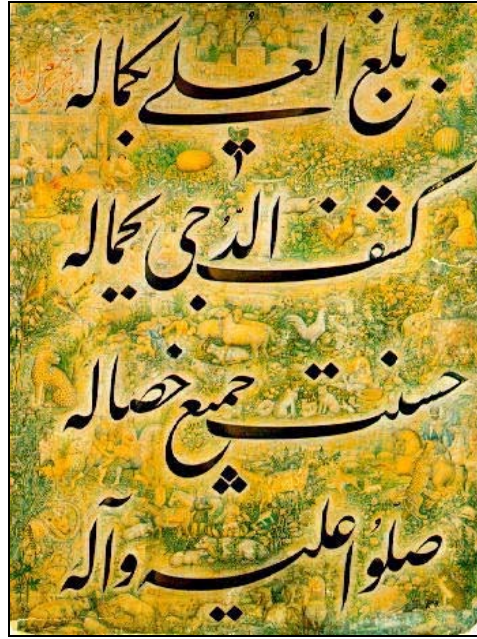 بلغ العلی بکماله
کشف الدّجی بجماله
حسنت جمیع خصاله
صلّوا علیه وآله